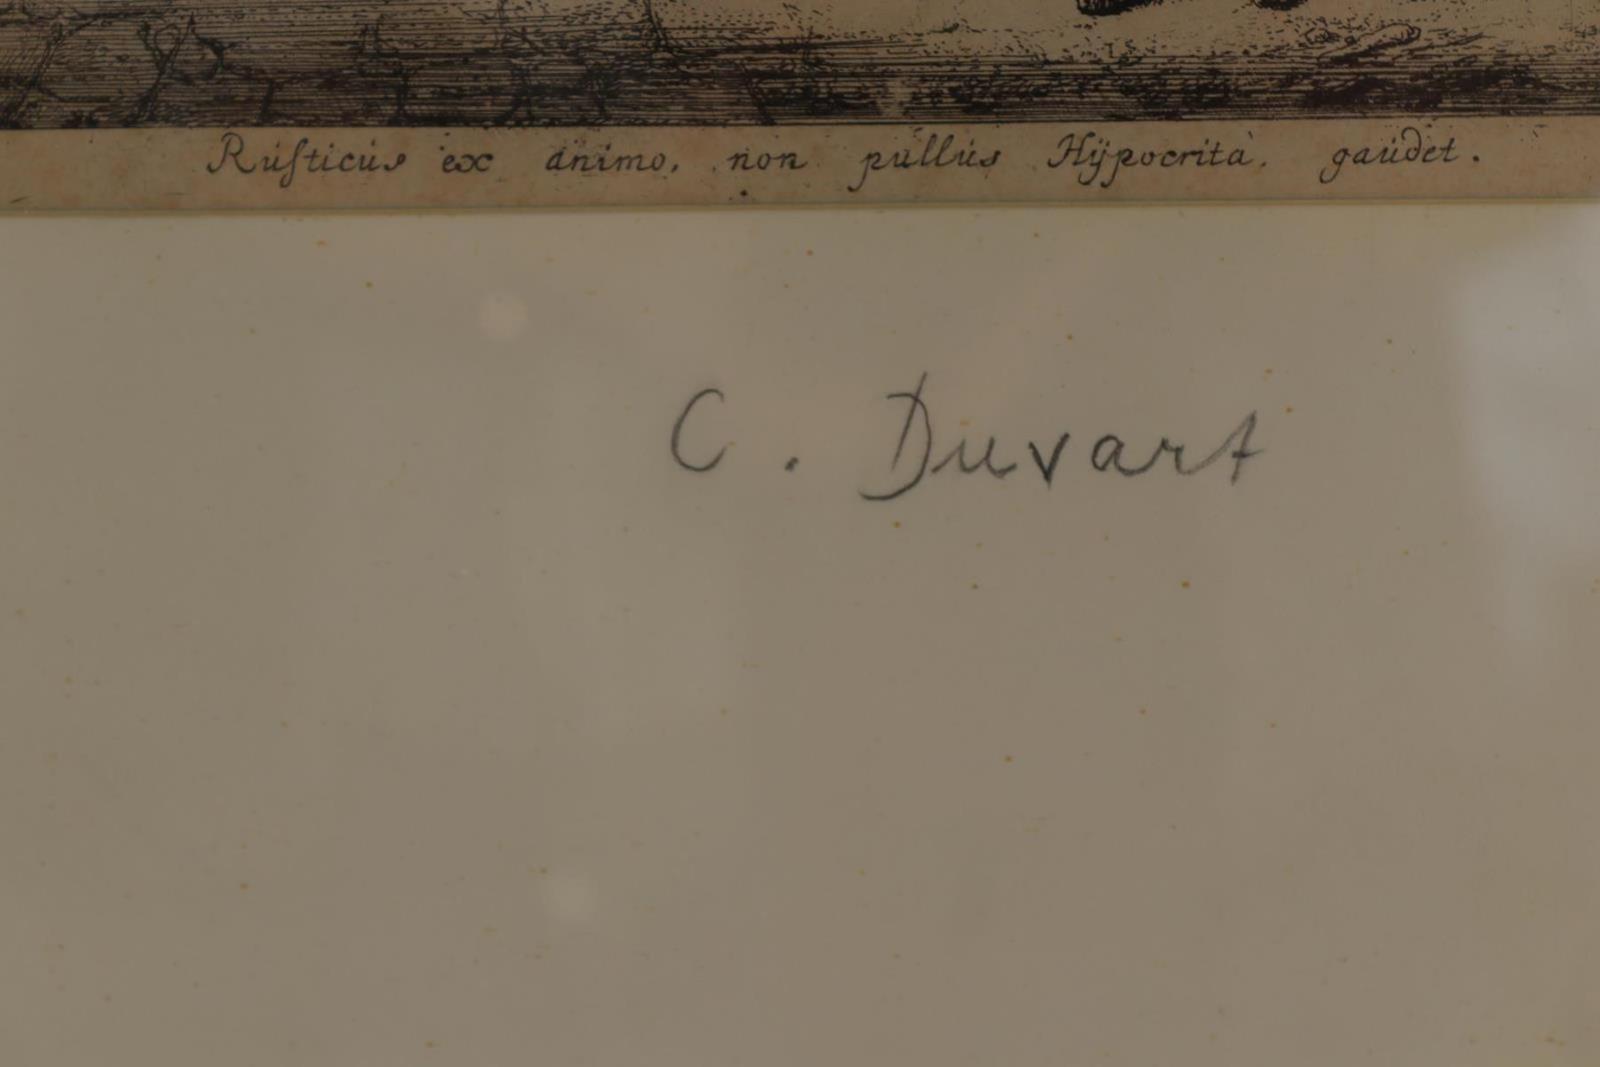 Rusticus ex animo, non pullus Hÿpocrita, gaudet.
C. Duvart